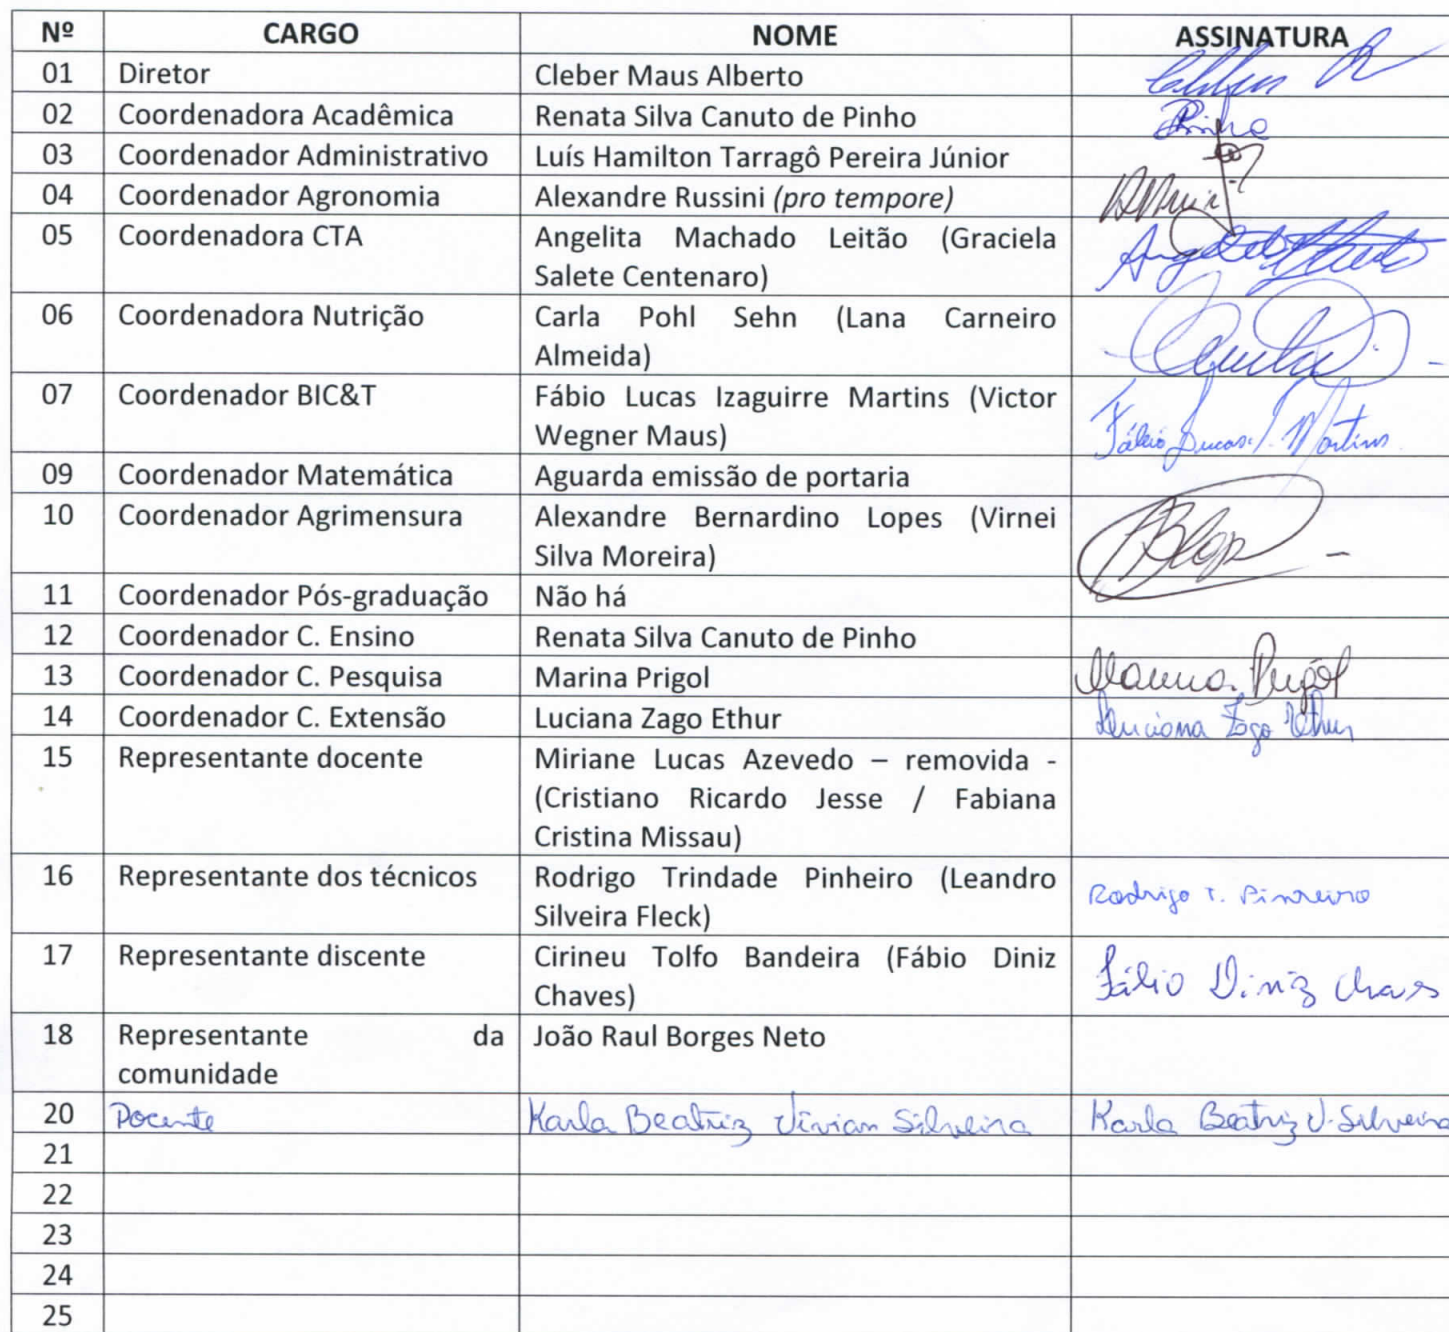 Nº CARGO NOME ASSINATURA
01 Diretor Cleber Maus Alberto
02 Coordenadora Acadêmica Renata Silva Canuto de Pinho Pinho
03 Coordenador Administrativo Luís Hamilton Tarragô Pereira Júnior
04 Coordenador Agronomia Alexandre Russini (pro tempore)
05 Coordenadora CTA Angelita Machado Leitão (Graciela
Salete Centenaro)
06 Coordenadora Nutrição Carla Pohl Sehn (Lana Carneiro
Almeida)
07 Coordenador BIC&T Fábio Lucas Izaguirre Martins (Victor
Wegner Maus) Fábio Lucas I. Martins
09 Coordenador Matemática Aguarda emissão de portaria
10 Coordenador Agrimensura Alexandre Bernardino Lopes (Virnei
Silva Moreira)
11 Coordenador Pós-graduação Não há
12 Coordenador C. Ensino Renata Silva Canuto de Pinho
13 Coordenador C. Pesquisa Marina Prigol Marina Prigol
14 Coordenador C. Extensão Luciana Zago Ethur Luciana Zago Ethur
15 Representante docente Miriane Lucas Azevedo – removida -
(Cristiano Ricardo Jesse / Fabiana
Cristina Missau)
16 Representante dos técnicos Rodrigo Trindade Pinheiro (Leandro
Silveira Fleck) Rodrigo T. Pinheiro
17 Representante discente Cirineu Tolfo Bandeira (Fábio Diniz
Chaves) Fábio Diniz Chaves
18 Representante da João Raul Borges Neto
comunidade
20 Docente Karla Beatriz Vivian Silveira Karla Beatriz V. Silveira
21
22
23
24
25